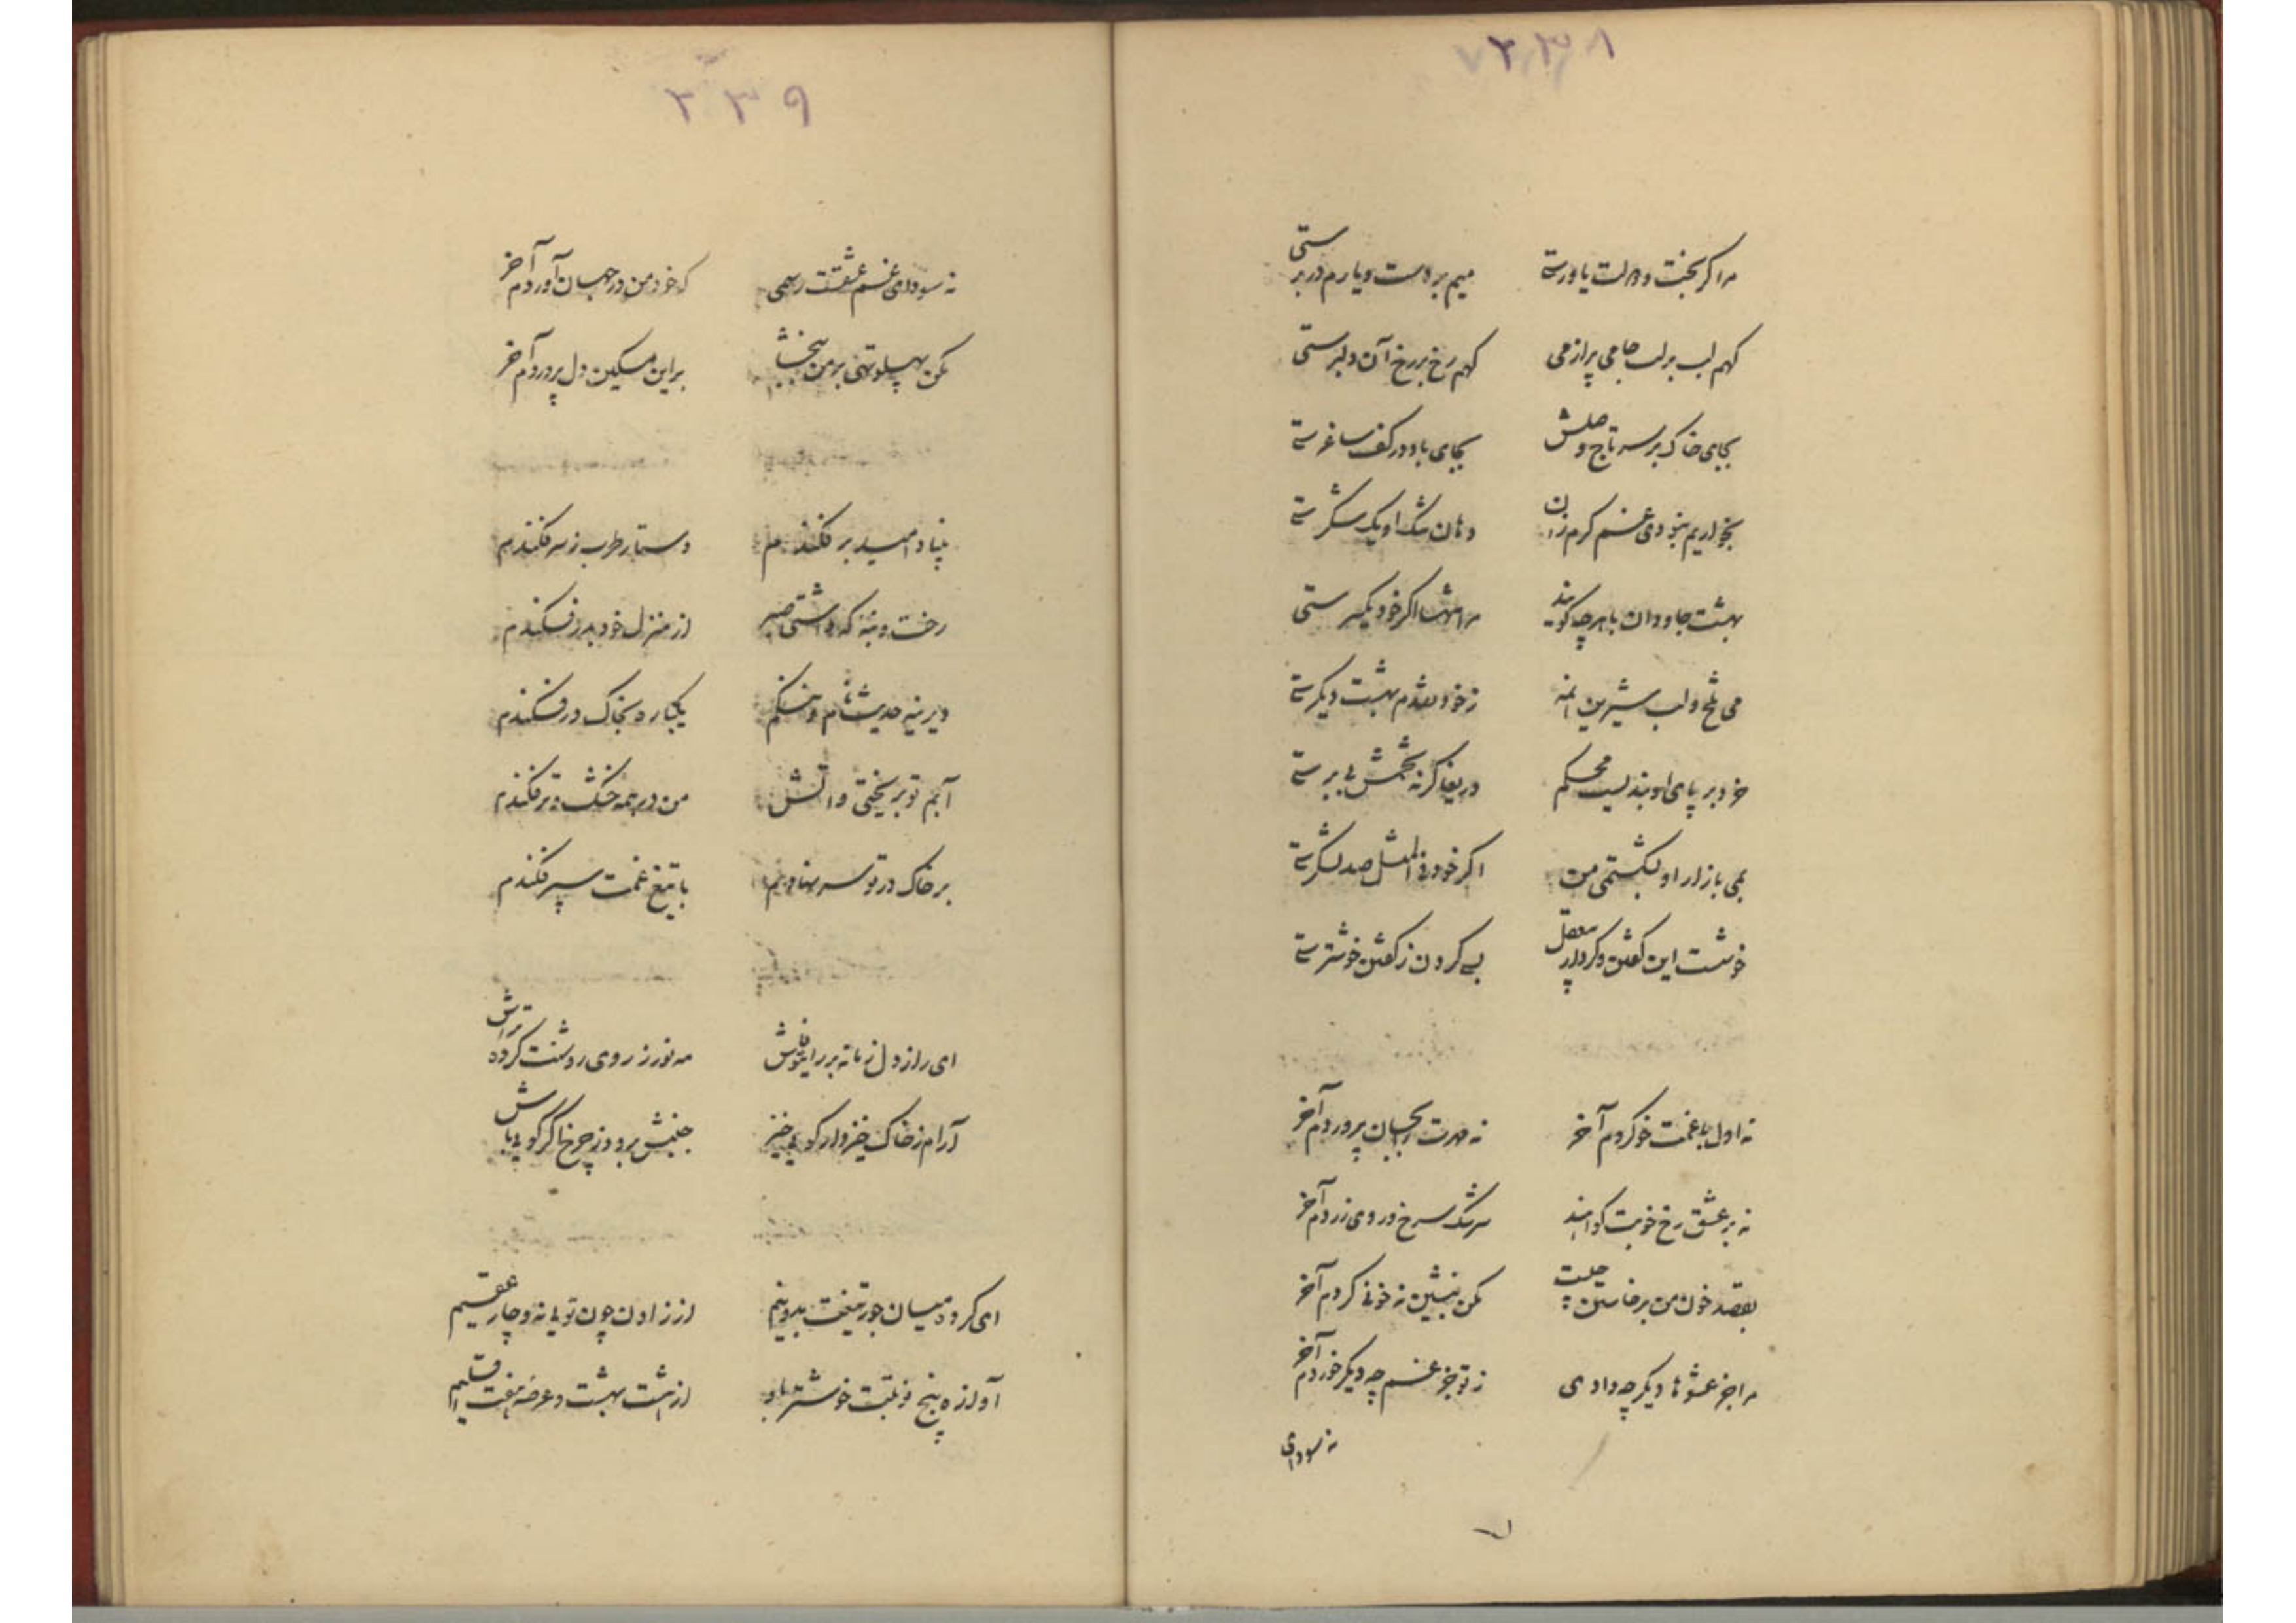 ۲۳۸
مرا کر بخت و دولت یاورستی میم بر دست و یارم در برستی
کهم لب بر لب جامی پر از می کهم رخ بر رخ آن دلبرستی
بجای خاک بر سر تاج وصلش بجای باد در کف ساغرستی
بخواریم نبودی غم کرم زان دهان تنک او یک شکرستی
بهشت جاودان با هرچه کویند مرا تنها اکر خود یکسرستی
می تلخ و لب شیرین بهشت دیکرستی
خرد بر پای او بندیست محکم دریغا کرنه بی برستی
او من اکر خود فی المثل صد لشکرستی
خوشست این کفتن و کردار بی کردن ز کفتن خوشترستی
نه اول با غمت خو کردم آخر نه مهرت را بجان پروردم آخر
نه بر عشق رخ خوبت کواهند سرشک سرخ و روی زردم آخر
بقصد خون من برخاستن چیست مکن بنشین نه خونی کردم آخر
مرا جز عشوها دیکر چه دادی ز تو جز غم چه دیکر خوردم آخر
نه سودای
۲۳۹
نه سودای غم عشقت رهمی که خود من در جهان آوردم آخر
مکن پهلو تهی بر من ببخشا بر این مسکین دل پر دردم آخر
بنیاد امید بر فکندم دستار طرب ز سر فکندم
رخت و بنه که داشتی صبر از منزل خود بدر فکندم
دیرینه حدیث نام و ننکم یکباره بخاک در فکندم
آبم تو بریختی و آتش من در همه خشک و تر فکندم
بر خاک در تو سر نهادیم با تیغ غمت سپر فکندم
ای راز دل زمانه بر رای تو فاش مه نور ز روی روشنت کرده تراش
آرام ز خاک خیزد ار کویی خیز جنبش برود ز چرخ اکر کویی باش
ای کرده میان جور تیغت بدو نیم از زادن چون تویی نه و چار عقیم
آوازه پنج نوبتت خوشتر باد از هشت بهشت و عرضه هفت اقلیم